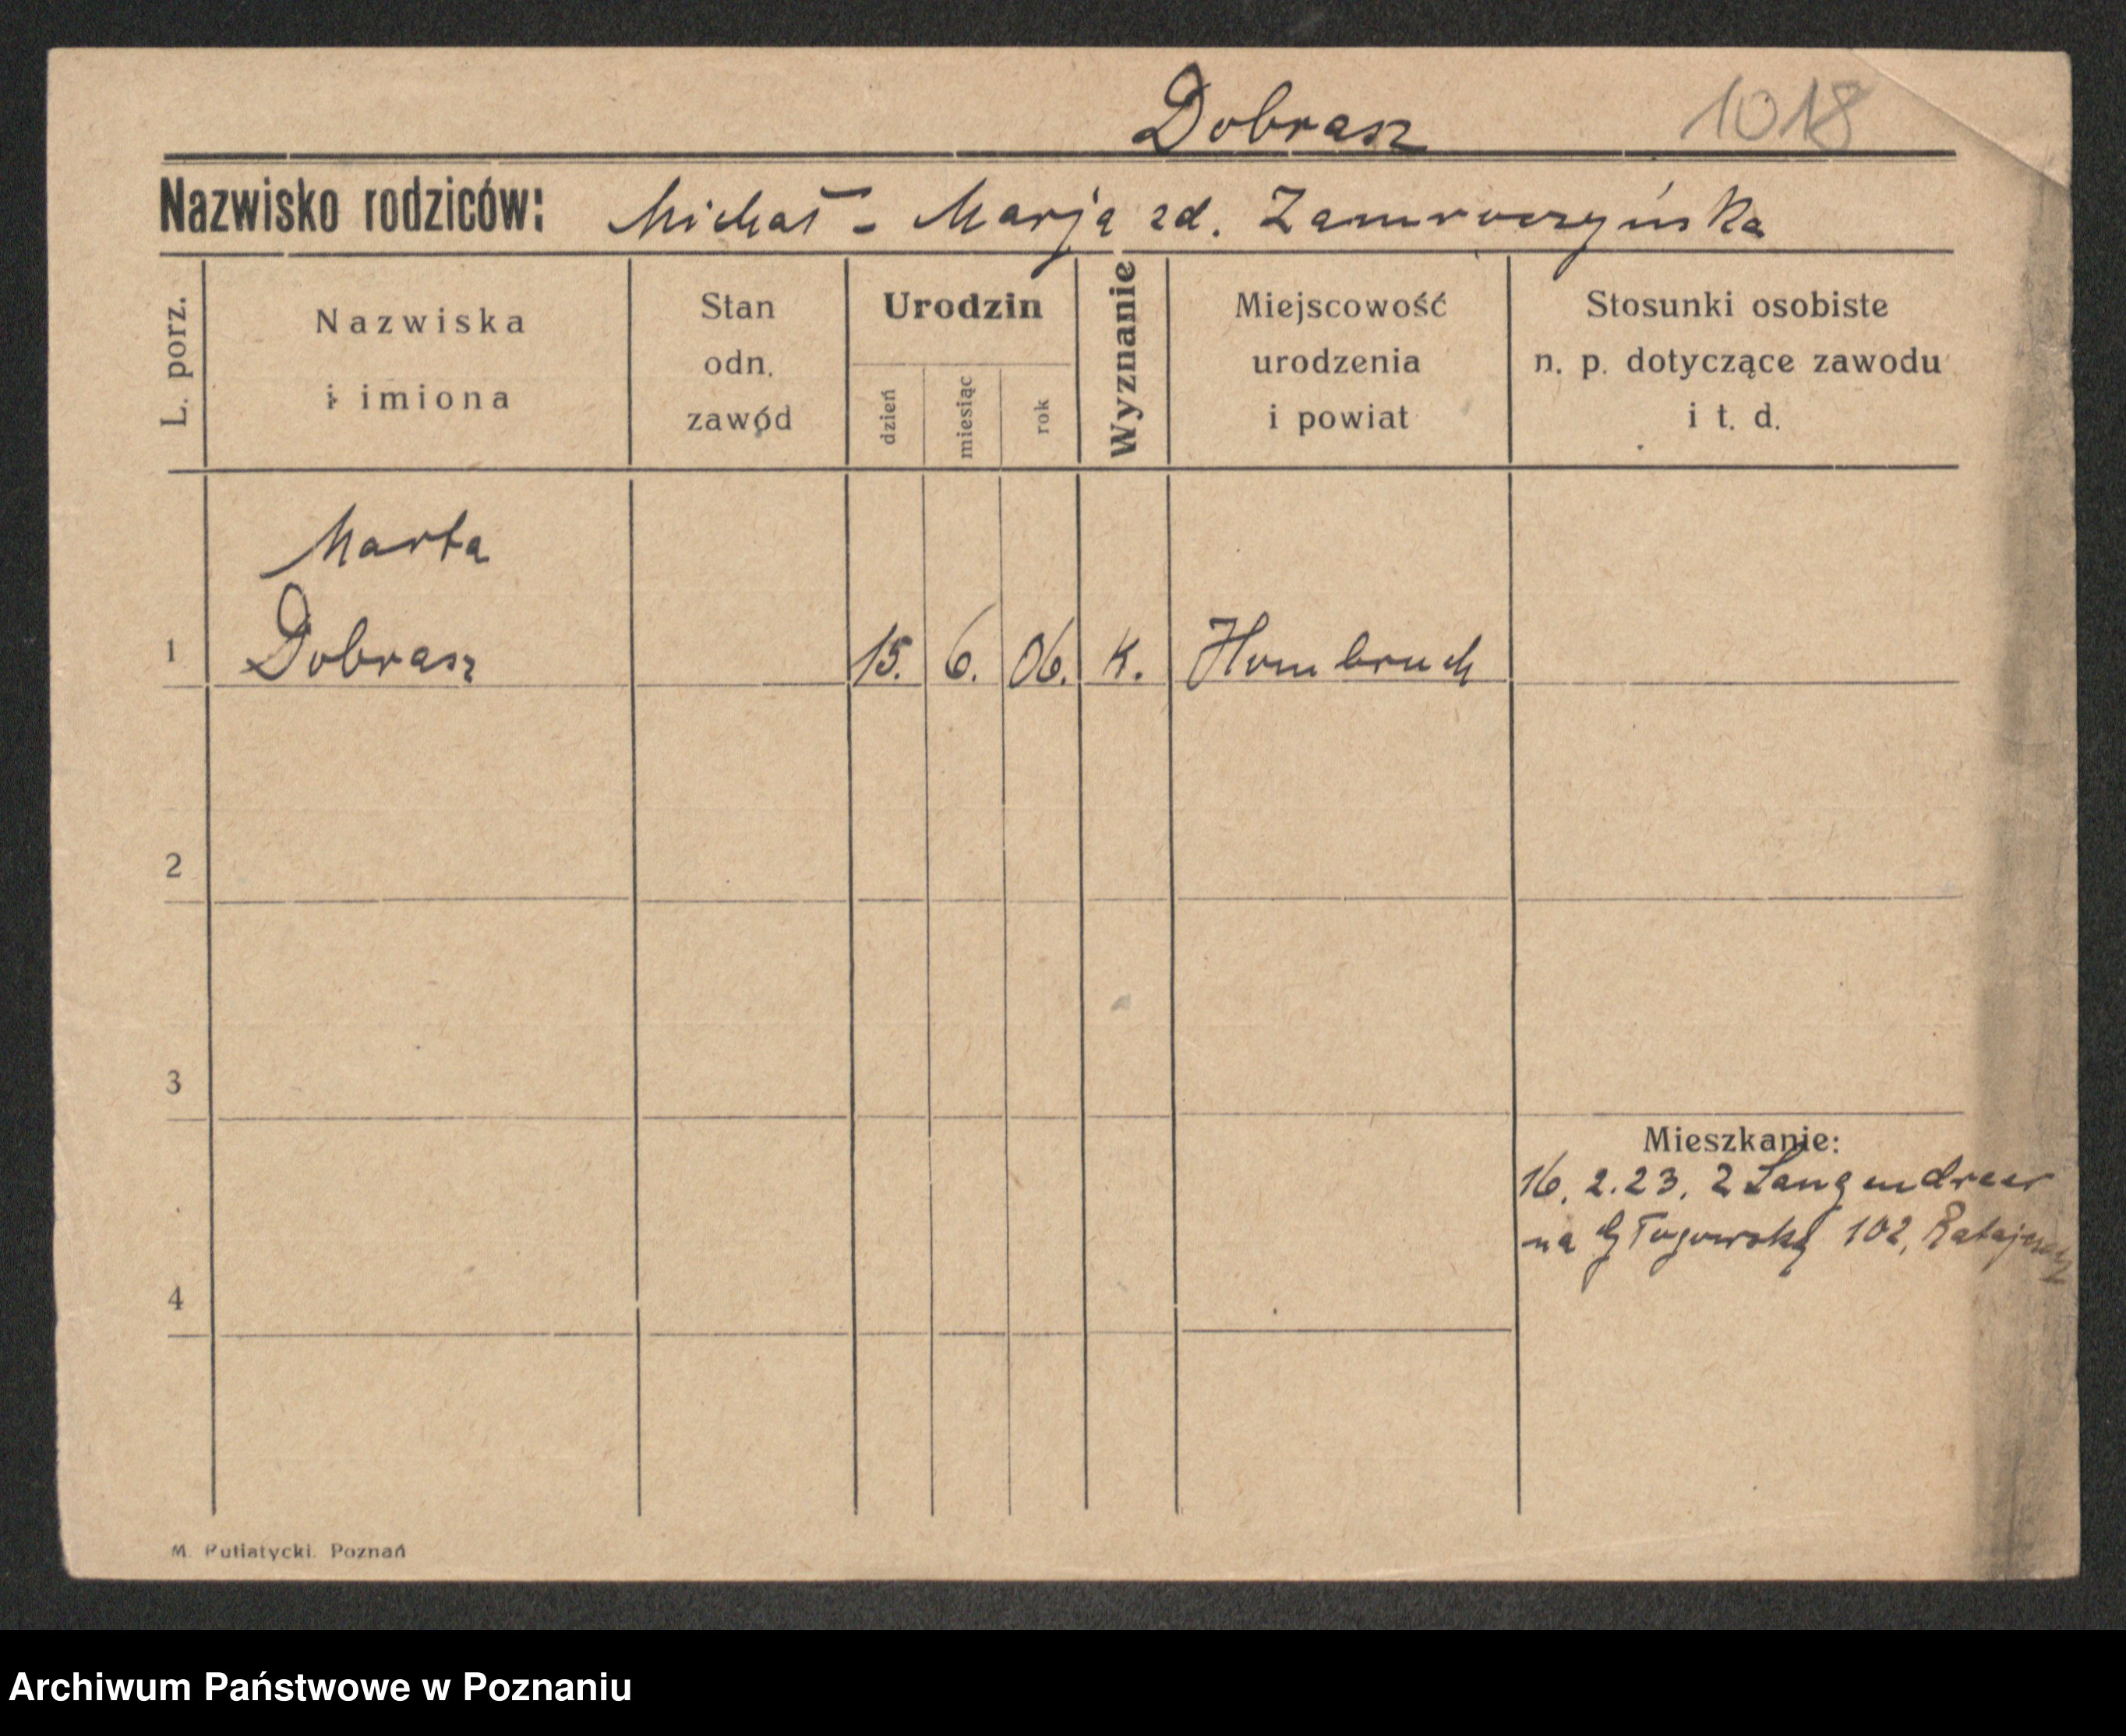 Dobrasz
1018
Nazwisko rodziców: Michał - Marja zd. Zamroczyńska
L. porz.
Nazwiska
i imiona
Stan
odn.
zawód
Urodzin
dzień
miesiąc
rok
Wyznanie
Miejscowość
urodzenia
i powiat
Stosunki osobiste
n. p. dotyczące zawodu
i t. d.
Marta
1 Dobrasz 15. 6. 06. K. Hombruch
2
3
Mieszkanie:
16. 2. 23. Z Langendreer
na Głogowską 102,
4
M. Putiatycki. Poznań
Archiwum Państwowe w Poznaniu